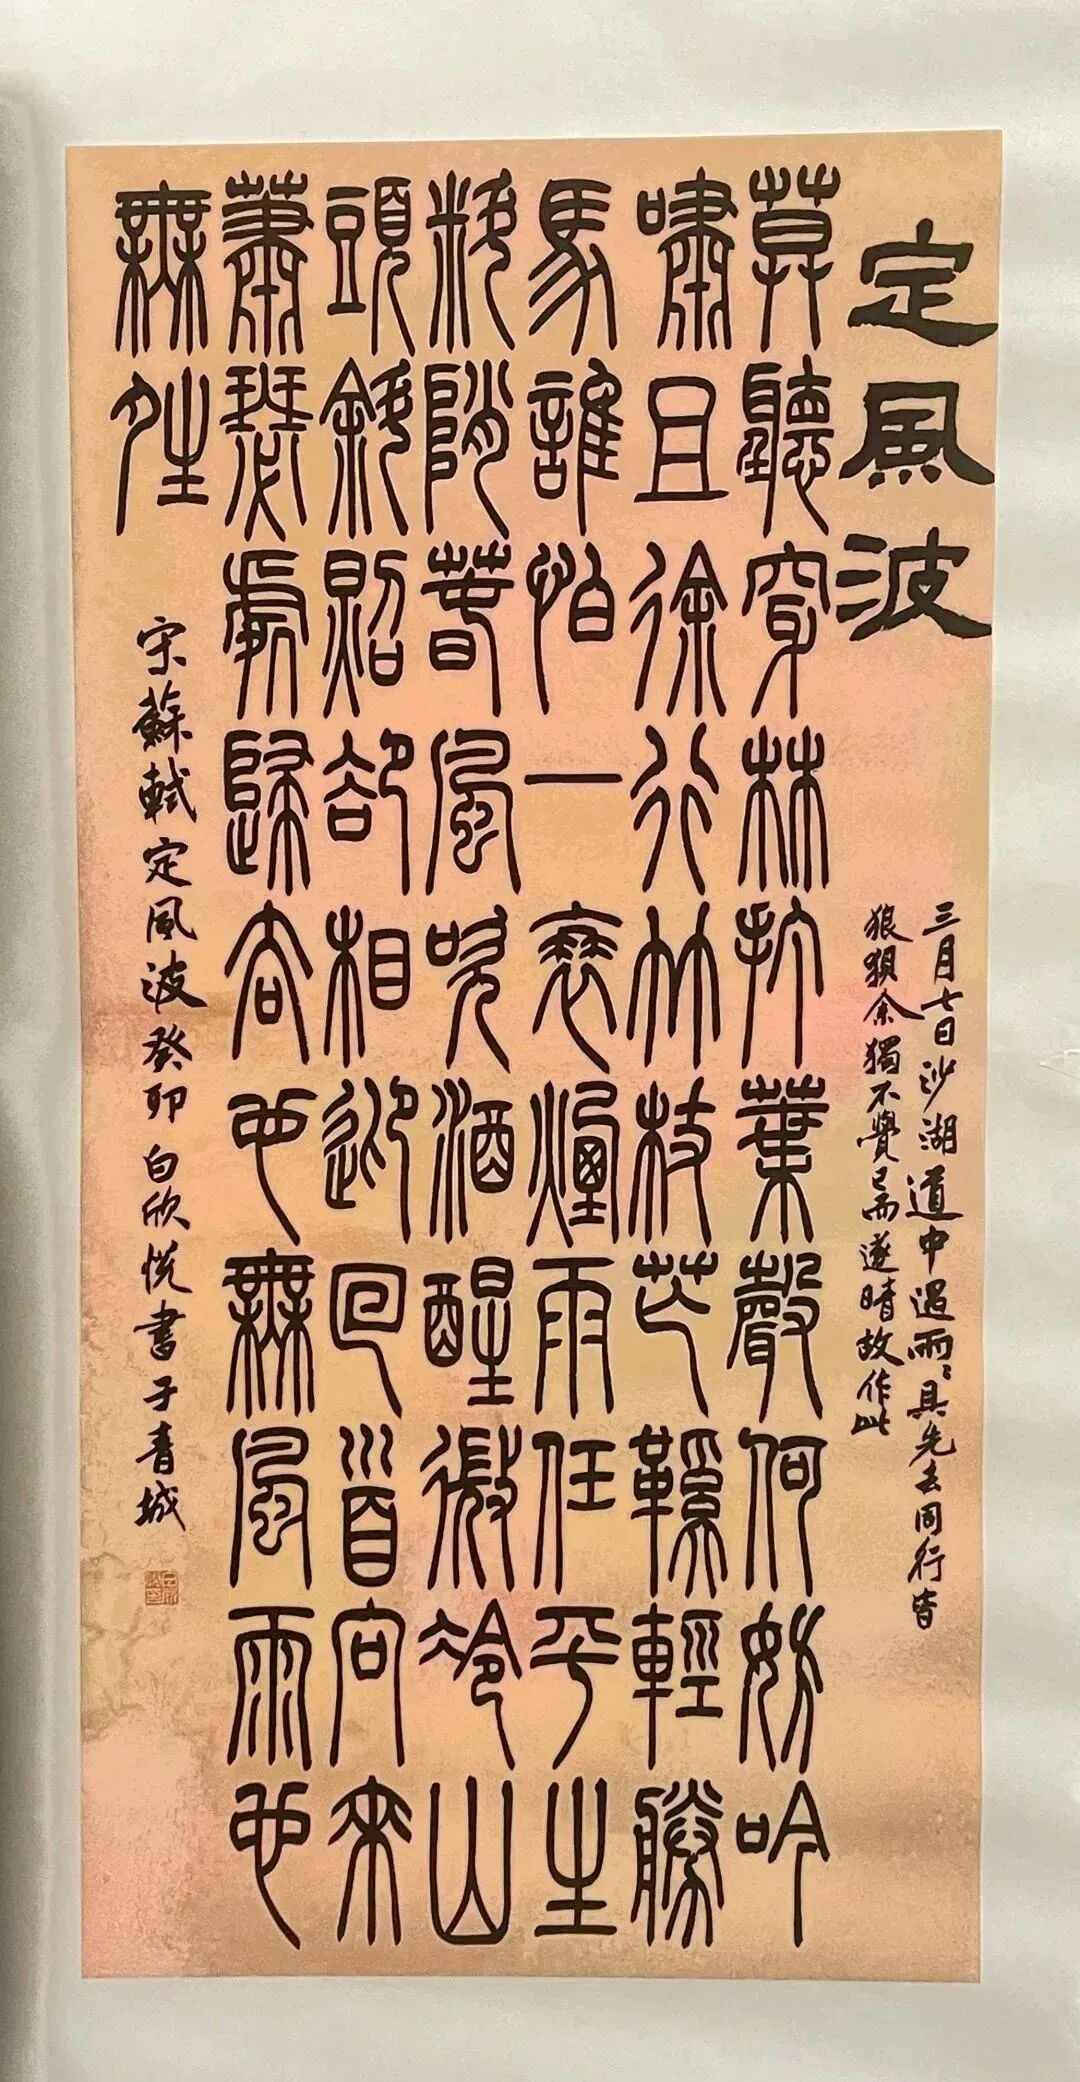 定風波
三月七日沙湖道中遇雨〻具先去同行皆
狼狽余獨不覺已而遂晴故作此
莫聽穿林打葉聲何妨吟
嘯且徐行竹杖芒鞵輕勝
馬誰怕一蓑煙雨任平生
料峭春風吹酒醒微冷山
頭斜照卻相迎回首向來
蕭瑟處歸去也無風雨也
無姓
宋蘇軾定風波癸卯白欣悅書于青城